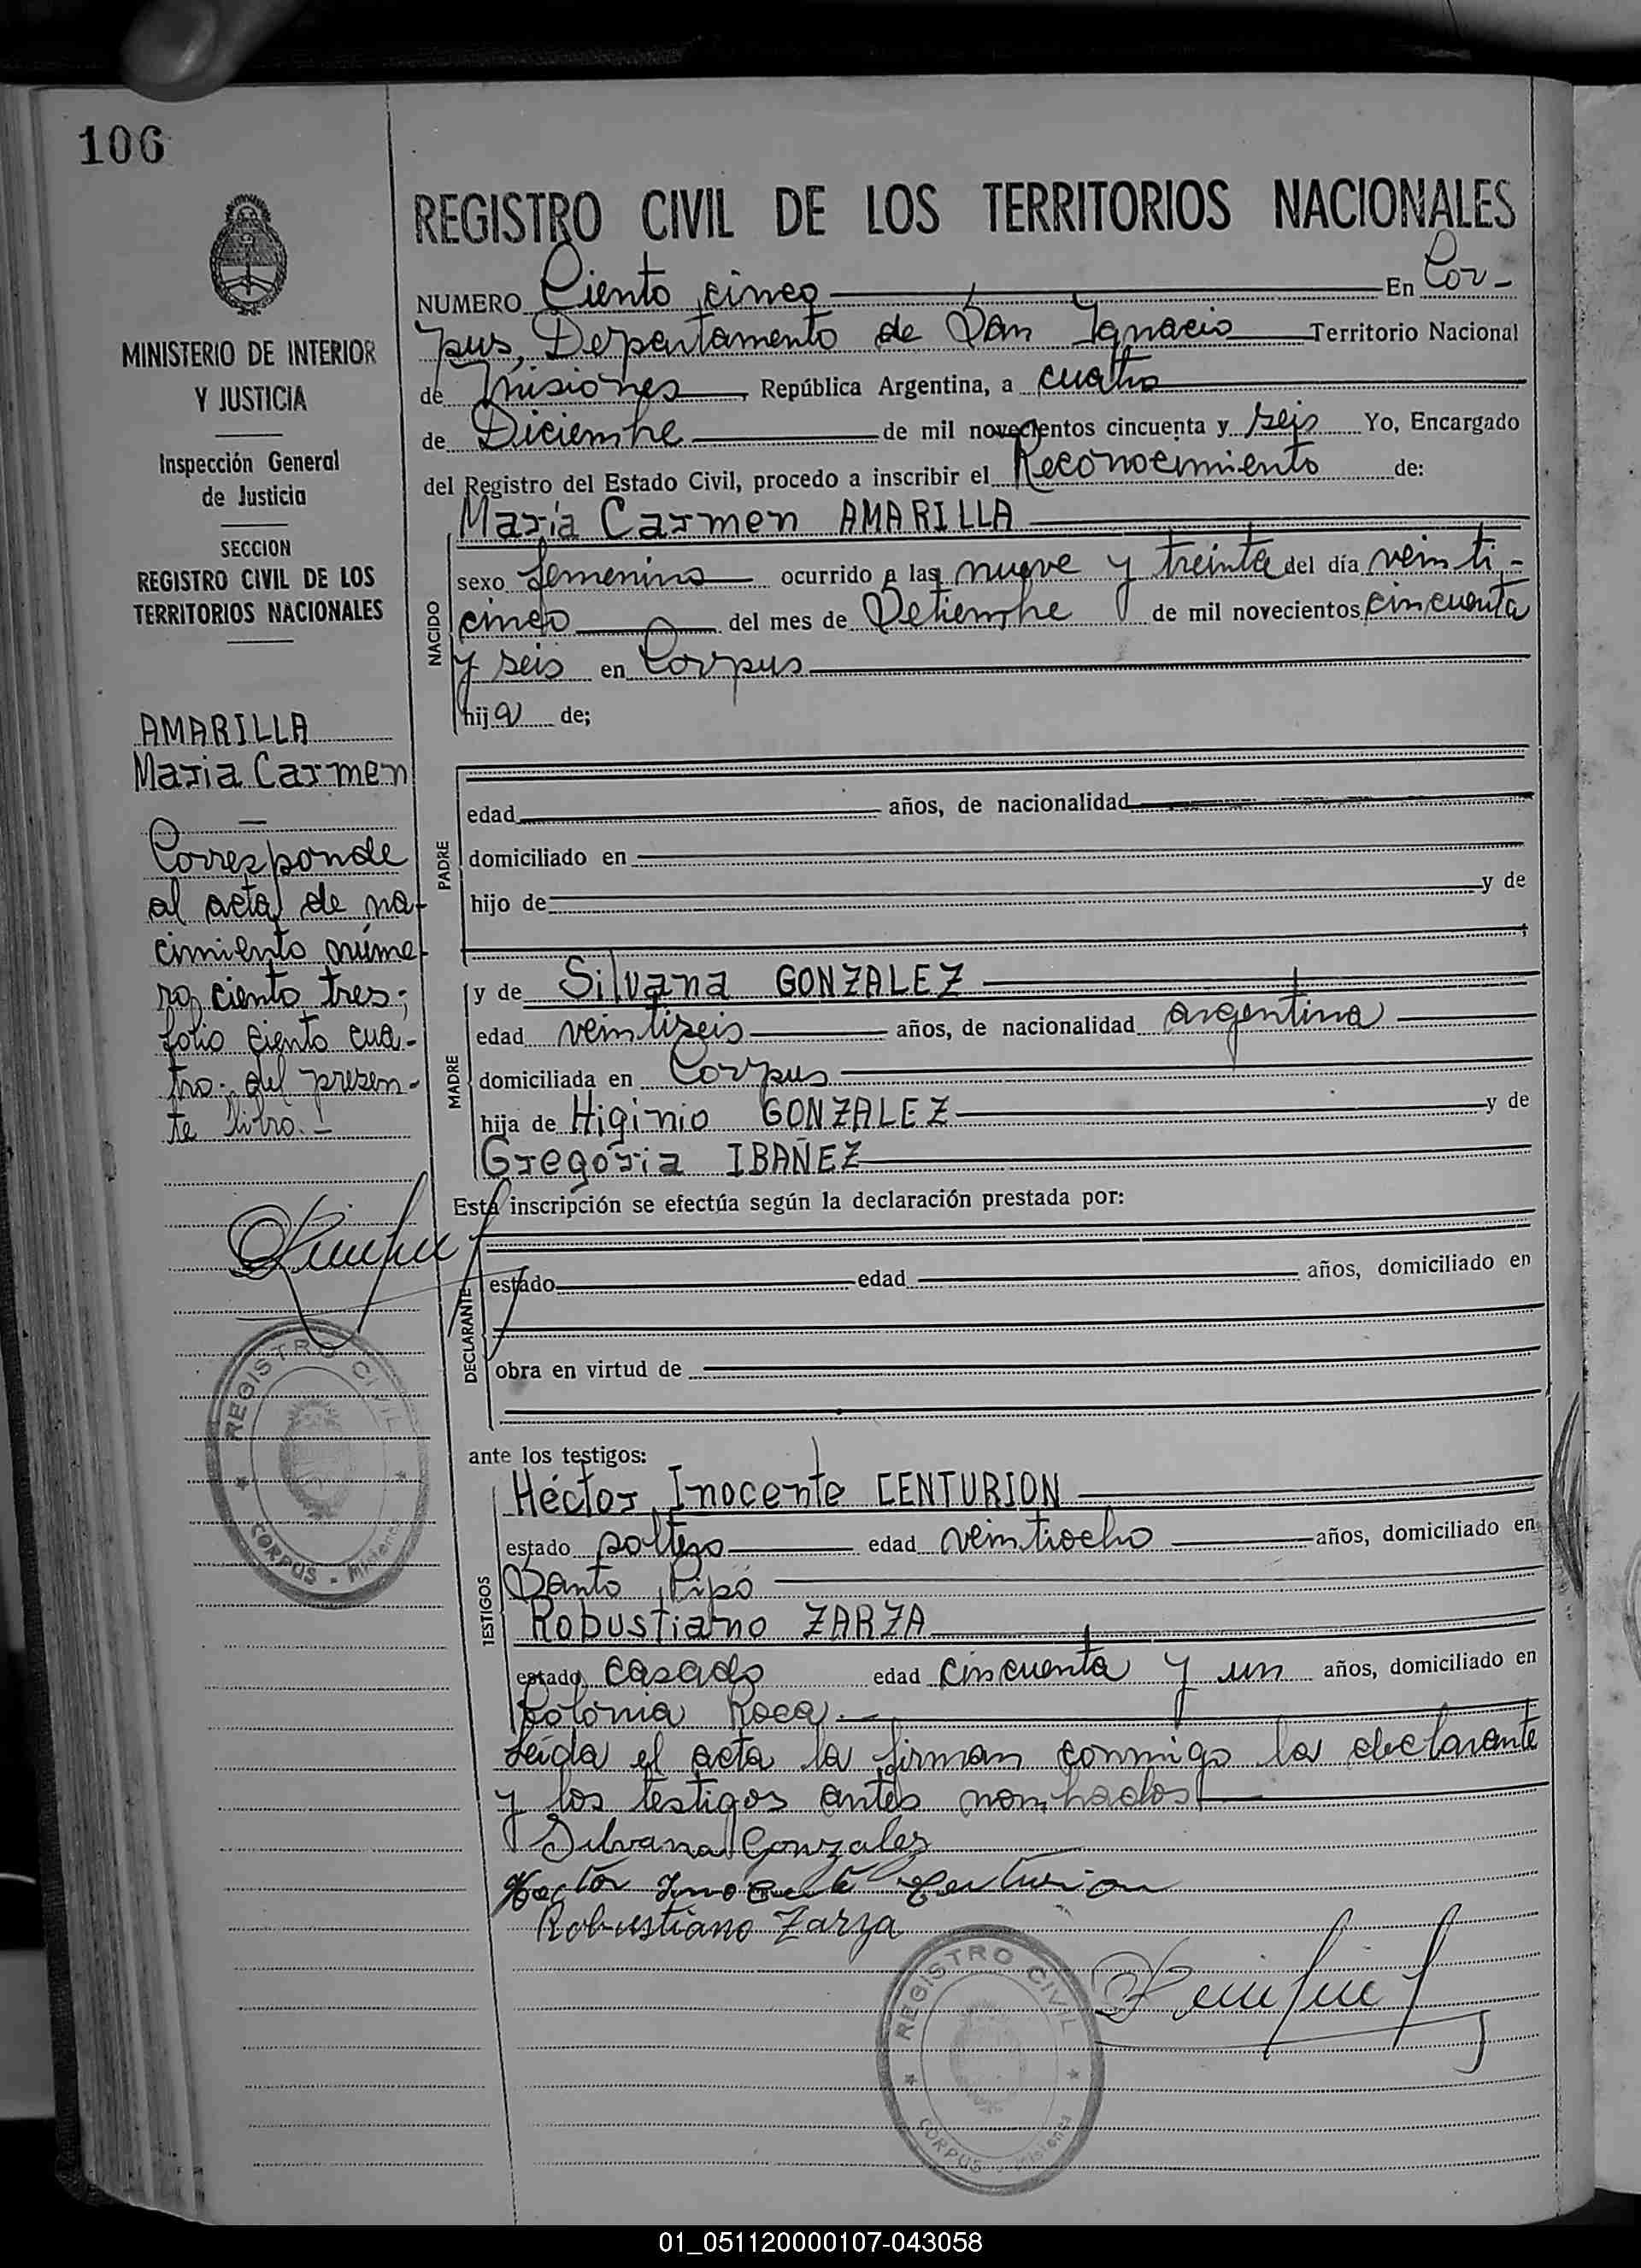 106
MINISTERIO DE INTERIOR
Y JUSTICIA
Inspección General
de Justicia
SECCION
REGISTRO CIVIL DE LOS
TERRITORIOS NACIONALES
AMARILLA
Maria Carmen
Corresponde
al acta de na-
cimiento núme-
ro ciento tres;
folio ciento cua-
tro; del presen-
te libro.-
REGISTRO CIVIL
CORPUS - Misiones
REGISTRO CIVIL DE LOS TERRITORIOS NACIONALES
NUMERO Ciento cinco En Cor-
pus, Departamento de San Ignacio Territorio Nacional
de Misiones, República Argentina, a cuatro
de Diciembre de mil novecientos cincuenta y seis Yo, Encargado
del Registro del Estado Civil, procedo a inscribir el Reconocimiento de:
María Carmen AMARILLA
NACIDO
sexo femenino ocurrido a las nueve y treinta del día veinti-
cinco del mes de Setiembre de mil novecientos cincuenta
y seis en Corpus
hija de;
PADRE
edad años, de nacionalidad
domiciliado en
hijo de y de
MADRE
y de Silvana GONZALEZ
edad veintiseis años, de nacionalidad argentina
domiciliada en Corpus
hija de Higinio GONZALEZ y de
Gregoria IBAÑEZ
Esta inscripción se efectúa según la declaración prestada por:
DECLARANTE
estado edad años, domiciliado en
obra en virtud de
ante los testigos:
TESTIGOS
Héctor Inocente CENTURION
estado soltero edad veintiocho años, domiciliado en
Santo Pipó
Robustiano ZARZA
estado casado edad cincuenta y un años, domiciliado en
Colonia Roca.-
Leída el acta la firman conmigo la declarante
y los testigos antes nombrados
Silvana Gonzalez
Hector Inocente Centurion
Robustiano Zarza
REGISTRO CIVIL
CORPUS - Misiones
01_051120000107-043058